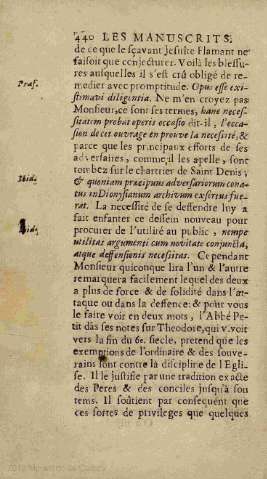 440 LES MANUSCRITS.
de ce que le sçavant Jesuite Flamant ne
faisoit que conjecturer. Voilà les blessu-
res ausquelles il s'est crû obligé de re-
Præf. medier avec promptitude. Opus esse exi-
stimavi diligentia. Ne m'en croyez pas
Monsieur, ce sont ses termes, hanc neces-
sitatem probat operis occasio dit-il, l'occa-
sion de cet ouvrage en prouve la necesité, &
parce que les principaux efforts de ses
adversaires, comme il les apelle, sont
tombez sur le chartrier de Saint Denis;
Ibid. & quoniam præcipuus adversariorum cona-
tus in Dionysianum archivum exsertus fue-
rat. La necessité de se deffendre luy a
Ibid. fait enfanter ce dessein nouveau pour
procurer de l'utilité au public, nempe
utilitas argumenti cum novitate conjuncta,
atque deffensionis necessitas. Cependant
Monsieur quiconque lira l'un & l'autre
remarquera facilement lequel des deux
a plus de force & de solidité dans l'at-
taque ou dans la deffence; & pour vous
le faire voir en deux mots, l'Abbé Pe-
tit dãs ses notes sur Theodore, qui v voit
vers la fin du 6e. siecle, pretend que les
exemptions de l'ordinaire & des souve-
rains sont contre la discipline de l'Egli-
se. Il le justifie par une tradition exacte
des Peres & des conciles jusqu'à son
tems. Il soûtient par consequent que
ces sortes de privileges que quelques